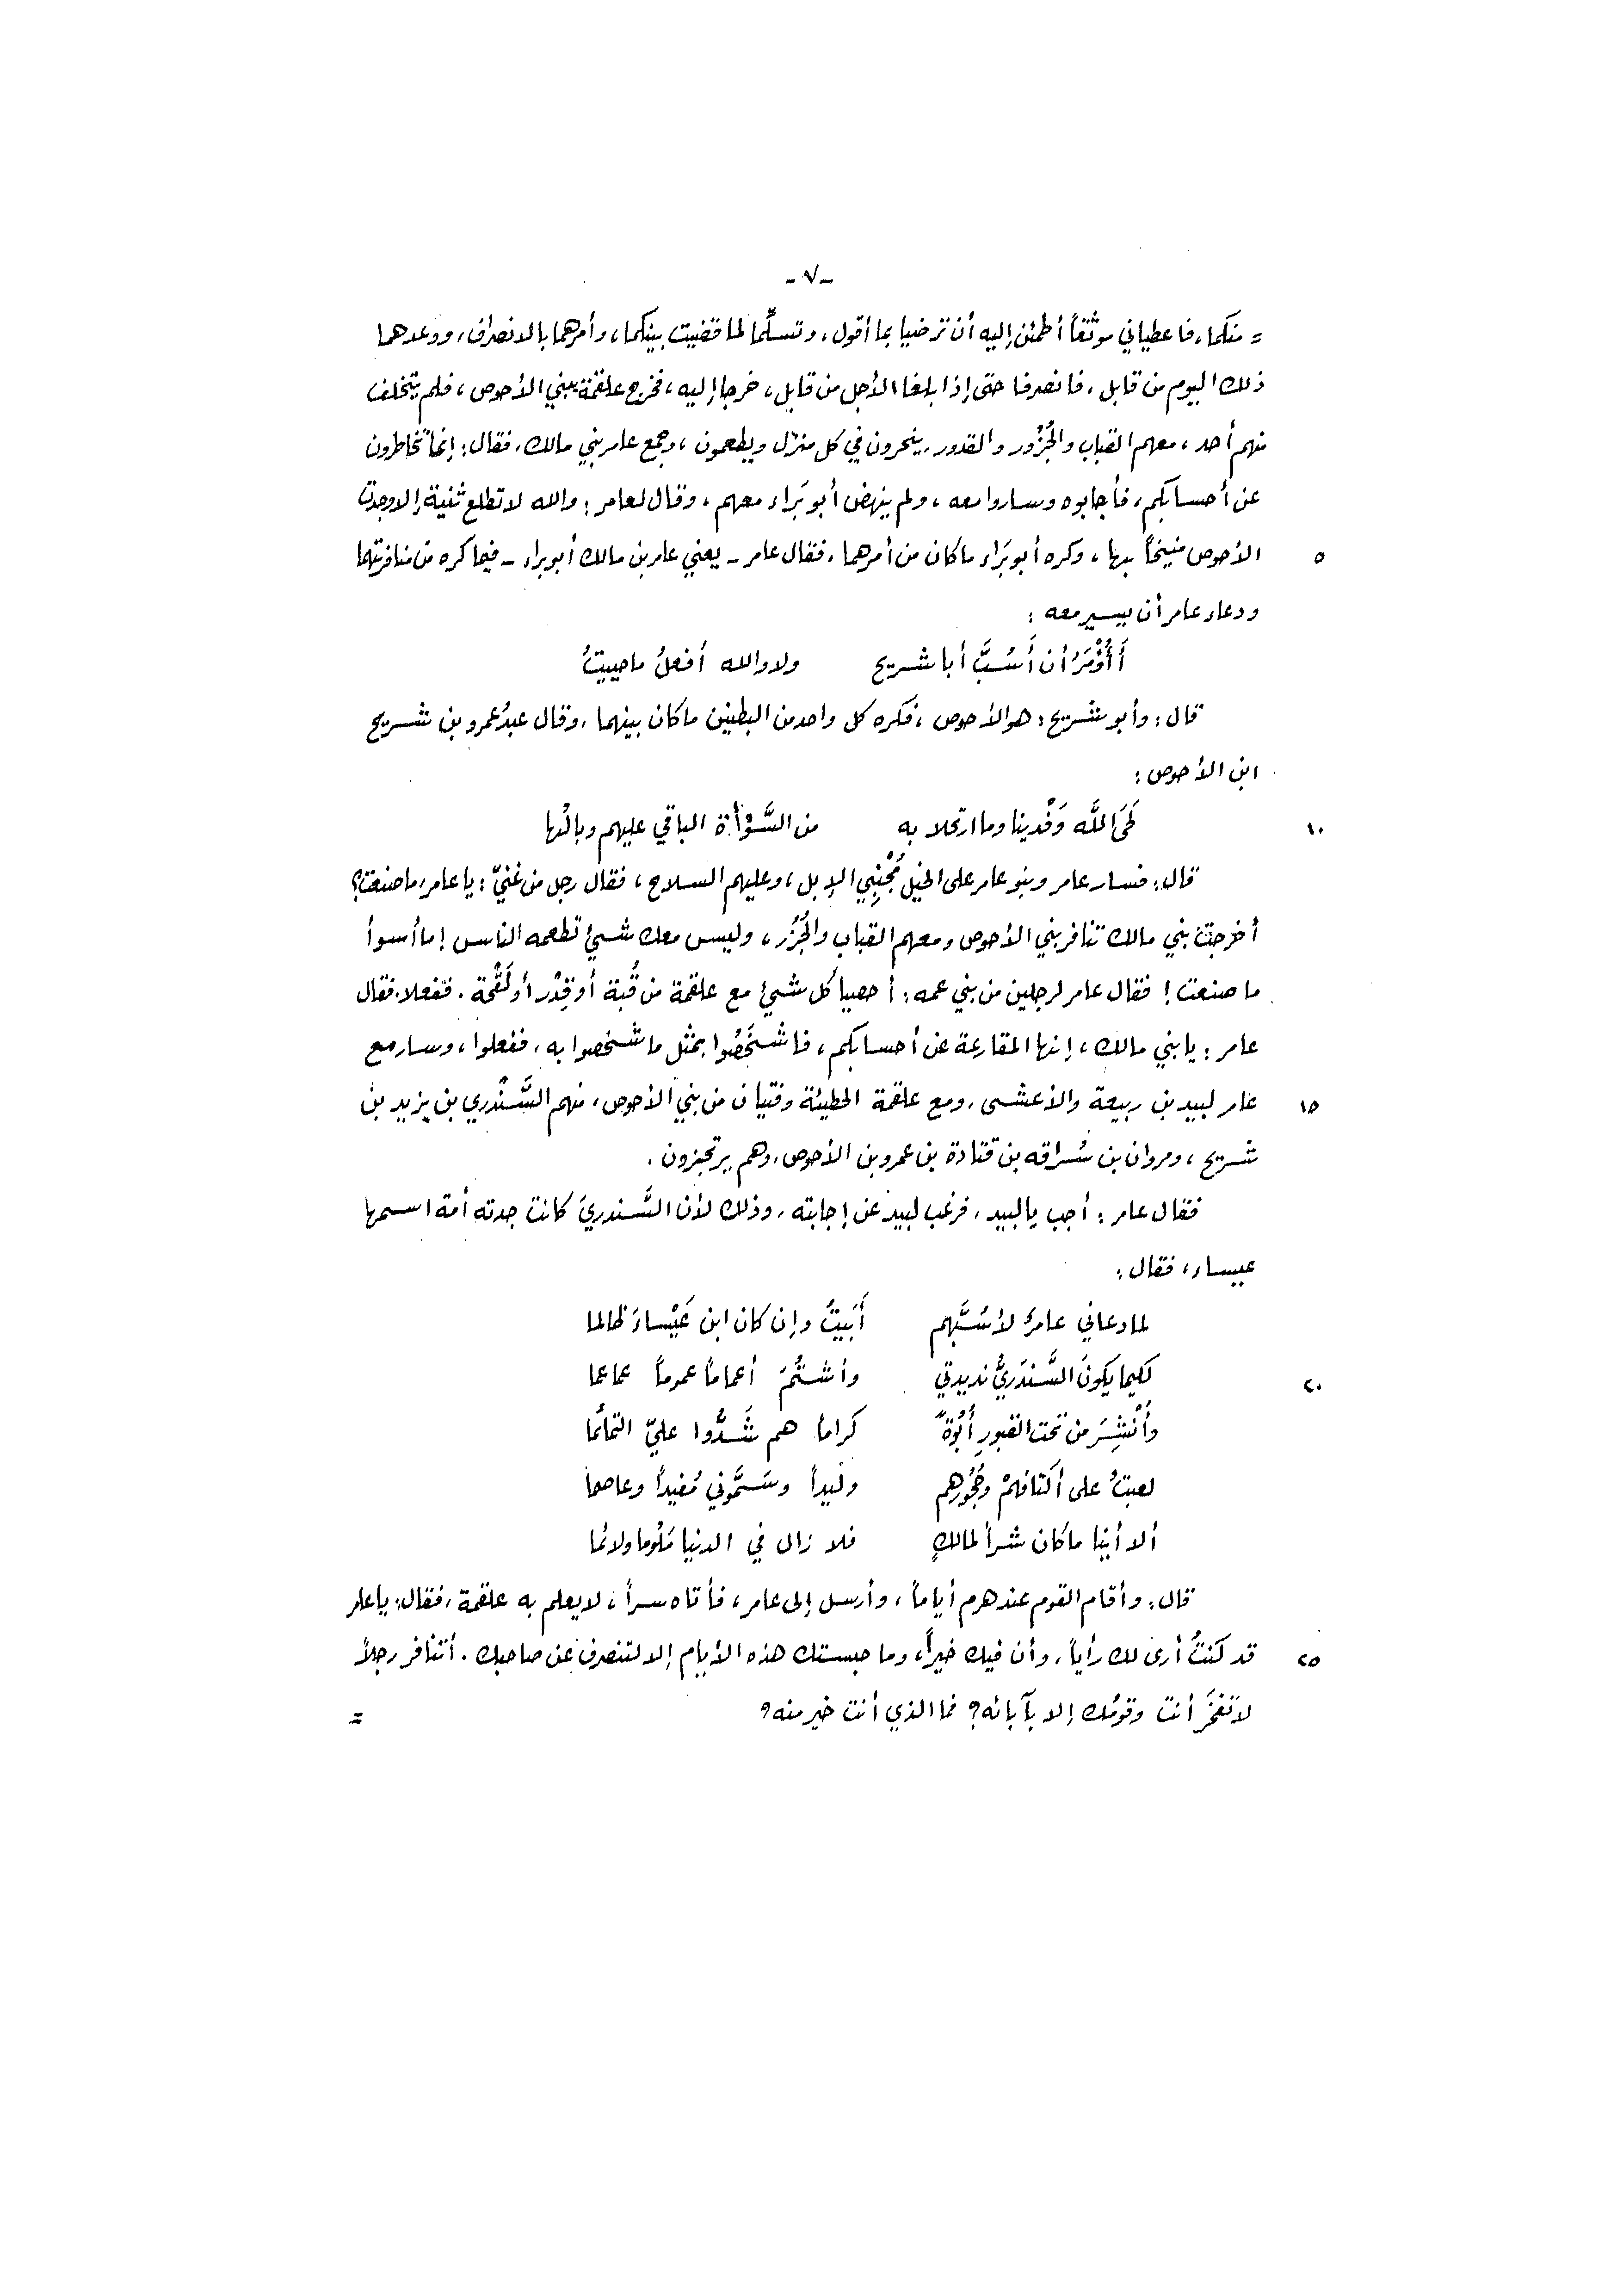 -٧-
= منكما، فاعطياني موثقاً أطمئن إليه أن ترضيا بما أقول، وتسلِّما لما قضيت بينكما، وأمرهما بالانصراف، ووعدهما
ذلك اليوم من قابل، فانصرفا حتى إذا بلغا الأجل من قابل، خرجا إليه، فخرج علقمة ببني الأحوص، فلم يتخلف
منهم أحد، معهم القباب والجُزُور والقدور، ينحرون في كل منزل ويطعمون، وجمع عامر بني مالك، فقال: إنما تخاطرون
عن أحسابكم، فأجابوه وساروا معه، ولم ينهض أبو بَراء معهم، وقال لعامر: والله لا تطلع ثنية إلا وجدت
الأحوص منيخاً بها، وكره أبو بَراء ما كان من أمرهما، فقال عامر - يعني عامر بن مالك أبو براء - فيما كره من منافرتهما ٥
ودعاء عامر أن يسير معه:
أَأُؤْمَرُ أن أَسُبَّ أبا شريح ولا والله أفعلُ ما حييتُ
قال: وأبو شريح: هو الأحوص، فكره كل واحد من البطنين ما كان بينهما، وقال عبدُ عمرو بن شريح
ابن الأحوص:
لَحَى اللَّه وَفْدينا وما ارتحلا به من السَّوْأَة الباقي عليهم وبالُها ١٠
قال: فسار عامر وبنو عامر على الخيل مُجْنِبِي الإبل، وعليهم السلاح، فقال رجل من غنيّ: يا عامر، ما صنعت؟
أخرجت بني مالك تنافر بني الأحوص ومعهم القباب والجُزُر، وليس معك شيئ تطعمه الناس! ما أسوأ
ما صنعت! فقال عامر لرجلين من بني عمه: أحصيا كل شيئ مع علقمة من قُبة أو قِدْر أو لَقْحة. ففعلا، فقال
عامر: يا بني مالك، إنها المقارعة عن أحسابكم، فاشْخَصُوا بمثل ما شخصوا به، ففعلوا، وسار مع
عامر لبيد بن ربيعة والأعشى، ومع علقمة الحطيئة وفتيان من بني الأحوص، منهم السَّنْدري بن يزيد بن ١٥
شريح، ومروان بن سُراقه بن قتادة بن عمرو بن الأحوص، وهم يرتجزون.
فقال عامر: أجب يالبيد، فرغب لبيد عن إجابته، وذلك لأن السَّندريَ كانت جدته أمة اسمها
عيساء، فقال:
لما دعاني عامرٌ لأسُبَّهم أَبَيتُ وإن كان ابن عَيْساءَ ظالما
لكيما يكونَ السَّندَريُّ نديدتي وأشتُمَ أعماماً عموماً عماعما ٢٠
وأُنْشِرَ من تحت القبورِ أُبُوّةً كراماً هم شَدُّوا عليّ التمائما
لعبتُ على أكتافهمْ وحُجُورهم وليداً وسَمَّوني مُفيداً وعاصما
ألا أينا ما كان شراً لمالكٍ فلا زال في الدنيا مَلُوما ولائما
قال: وأقام القوم عند هرم أياماً، وأرسل إلى عامر، فأتاه سراً، لا يعلم به علقمة، فقال: يا عامر
قد كنتُ أرى لك رأياً، وأن فيك خيراً، وما حبستك هذه الأيام إلا لتنصرف عن صاحبك. أتنافر رجلاً ٢٥
لا تفخَر أنت وقومُك إلا بآبائه؟ فما الذي أنت خير منه؟ =